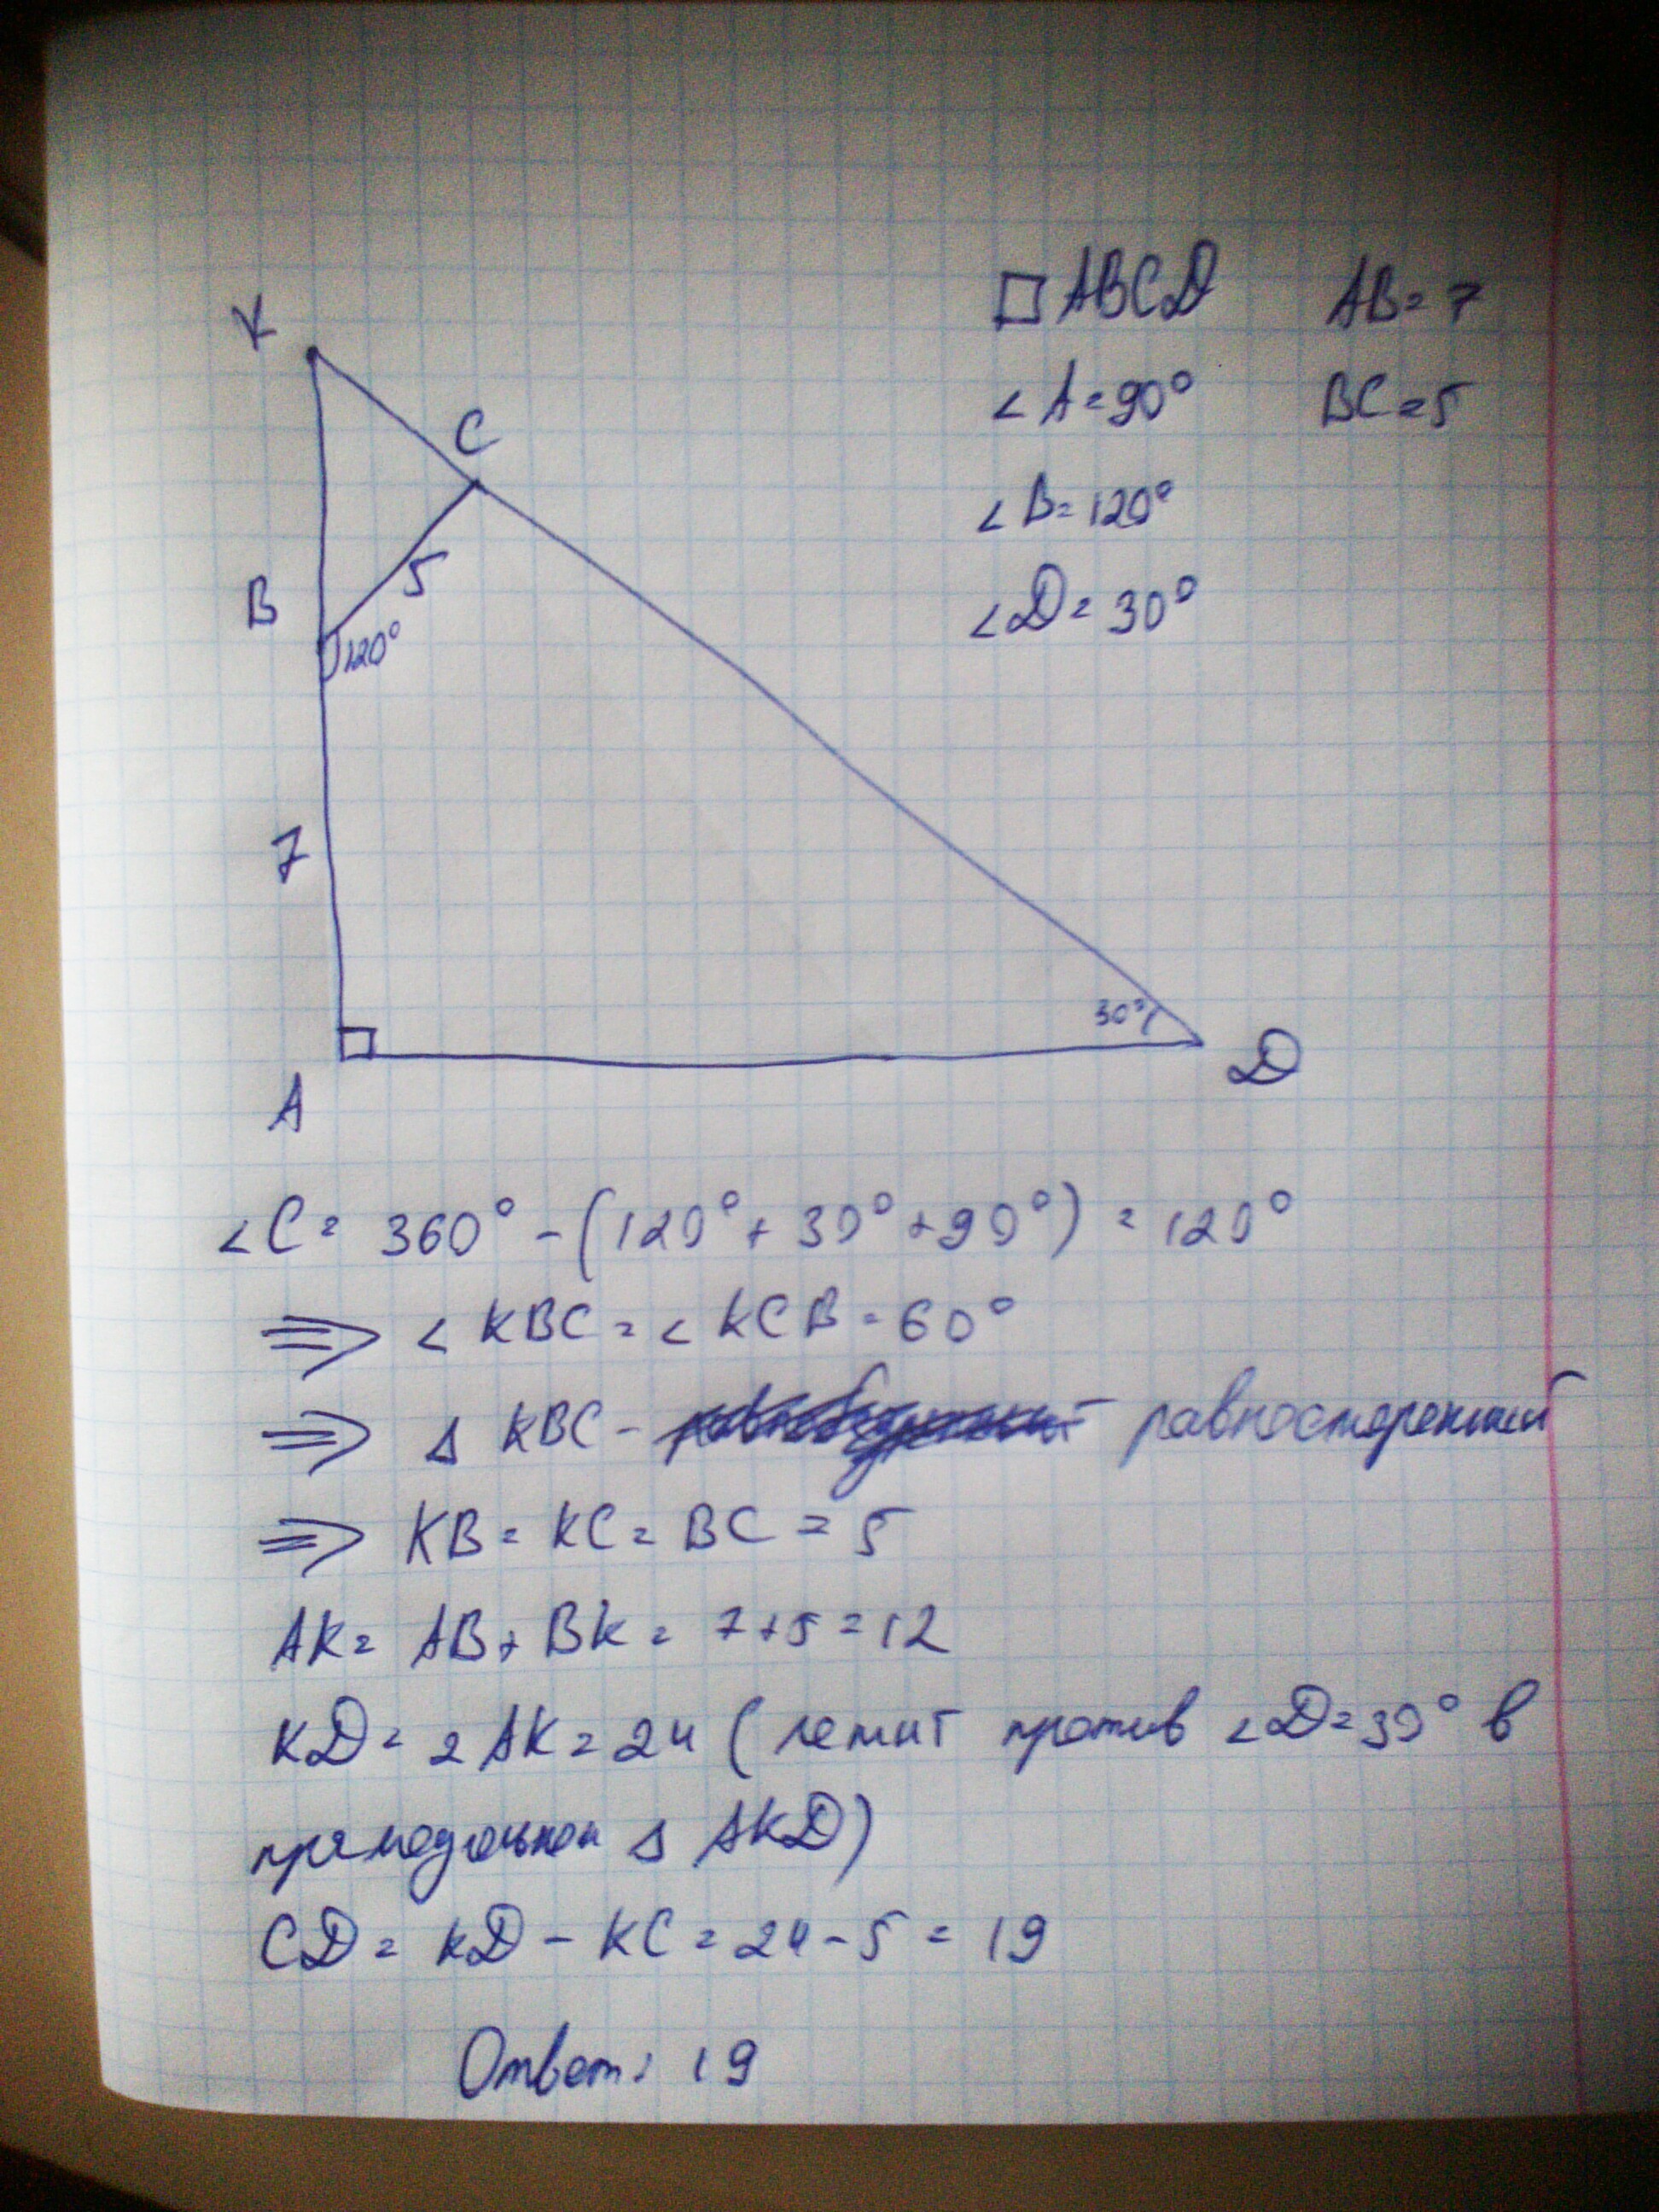 K
C
B
5
120°
7
A
30°
D
□ ABCD AB = 7
∠A = 90° BC = 5
∠B = 120°
∠D = 30°
∠C = 360° - (120° + 30° + 90°) = 120°
⇒ ∠KBC = ∠KCB = 60°
⇒ Δ KBC - равносторонний
⇒ KB = KC = BC = 5
AK = AB + BK = 7 + 5 = 12
KD = 2 AK = 24 (лежит против ∠D = 30° в
прямоугольном Δ AKD)
CD = KD - KC = 24 - 5 = 19
Ответ: 19